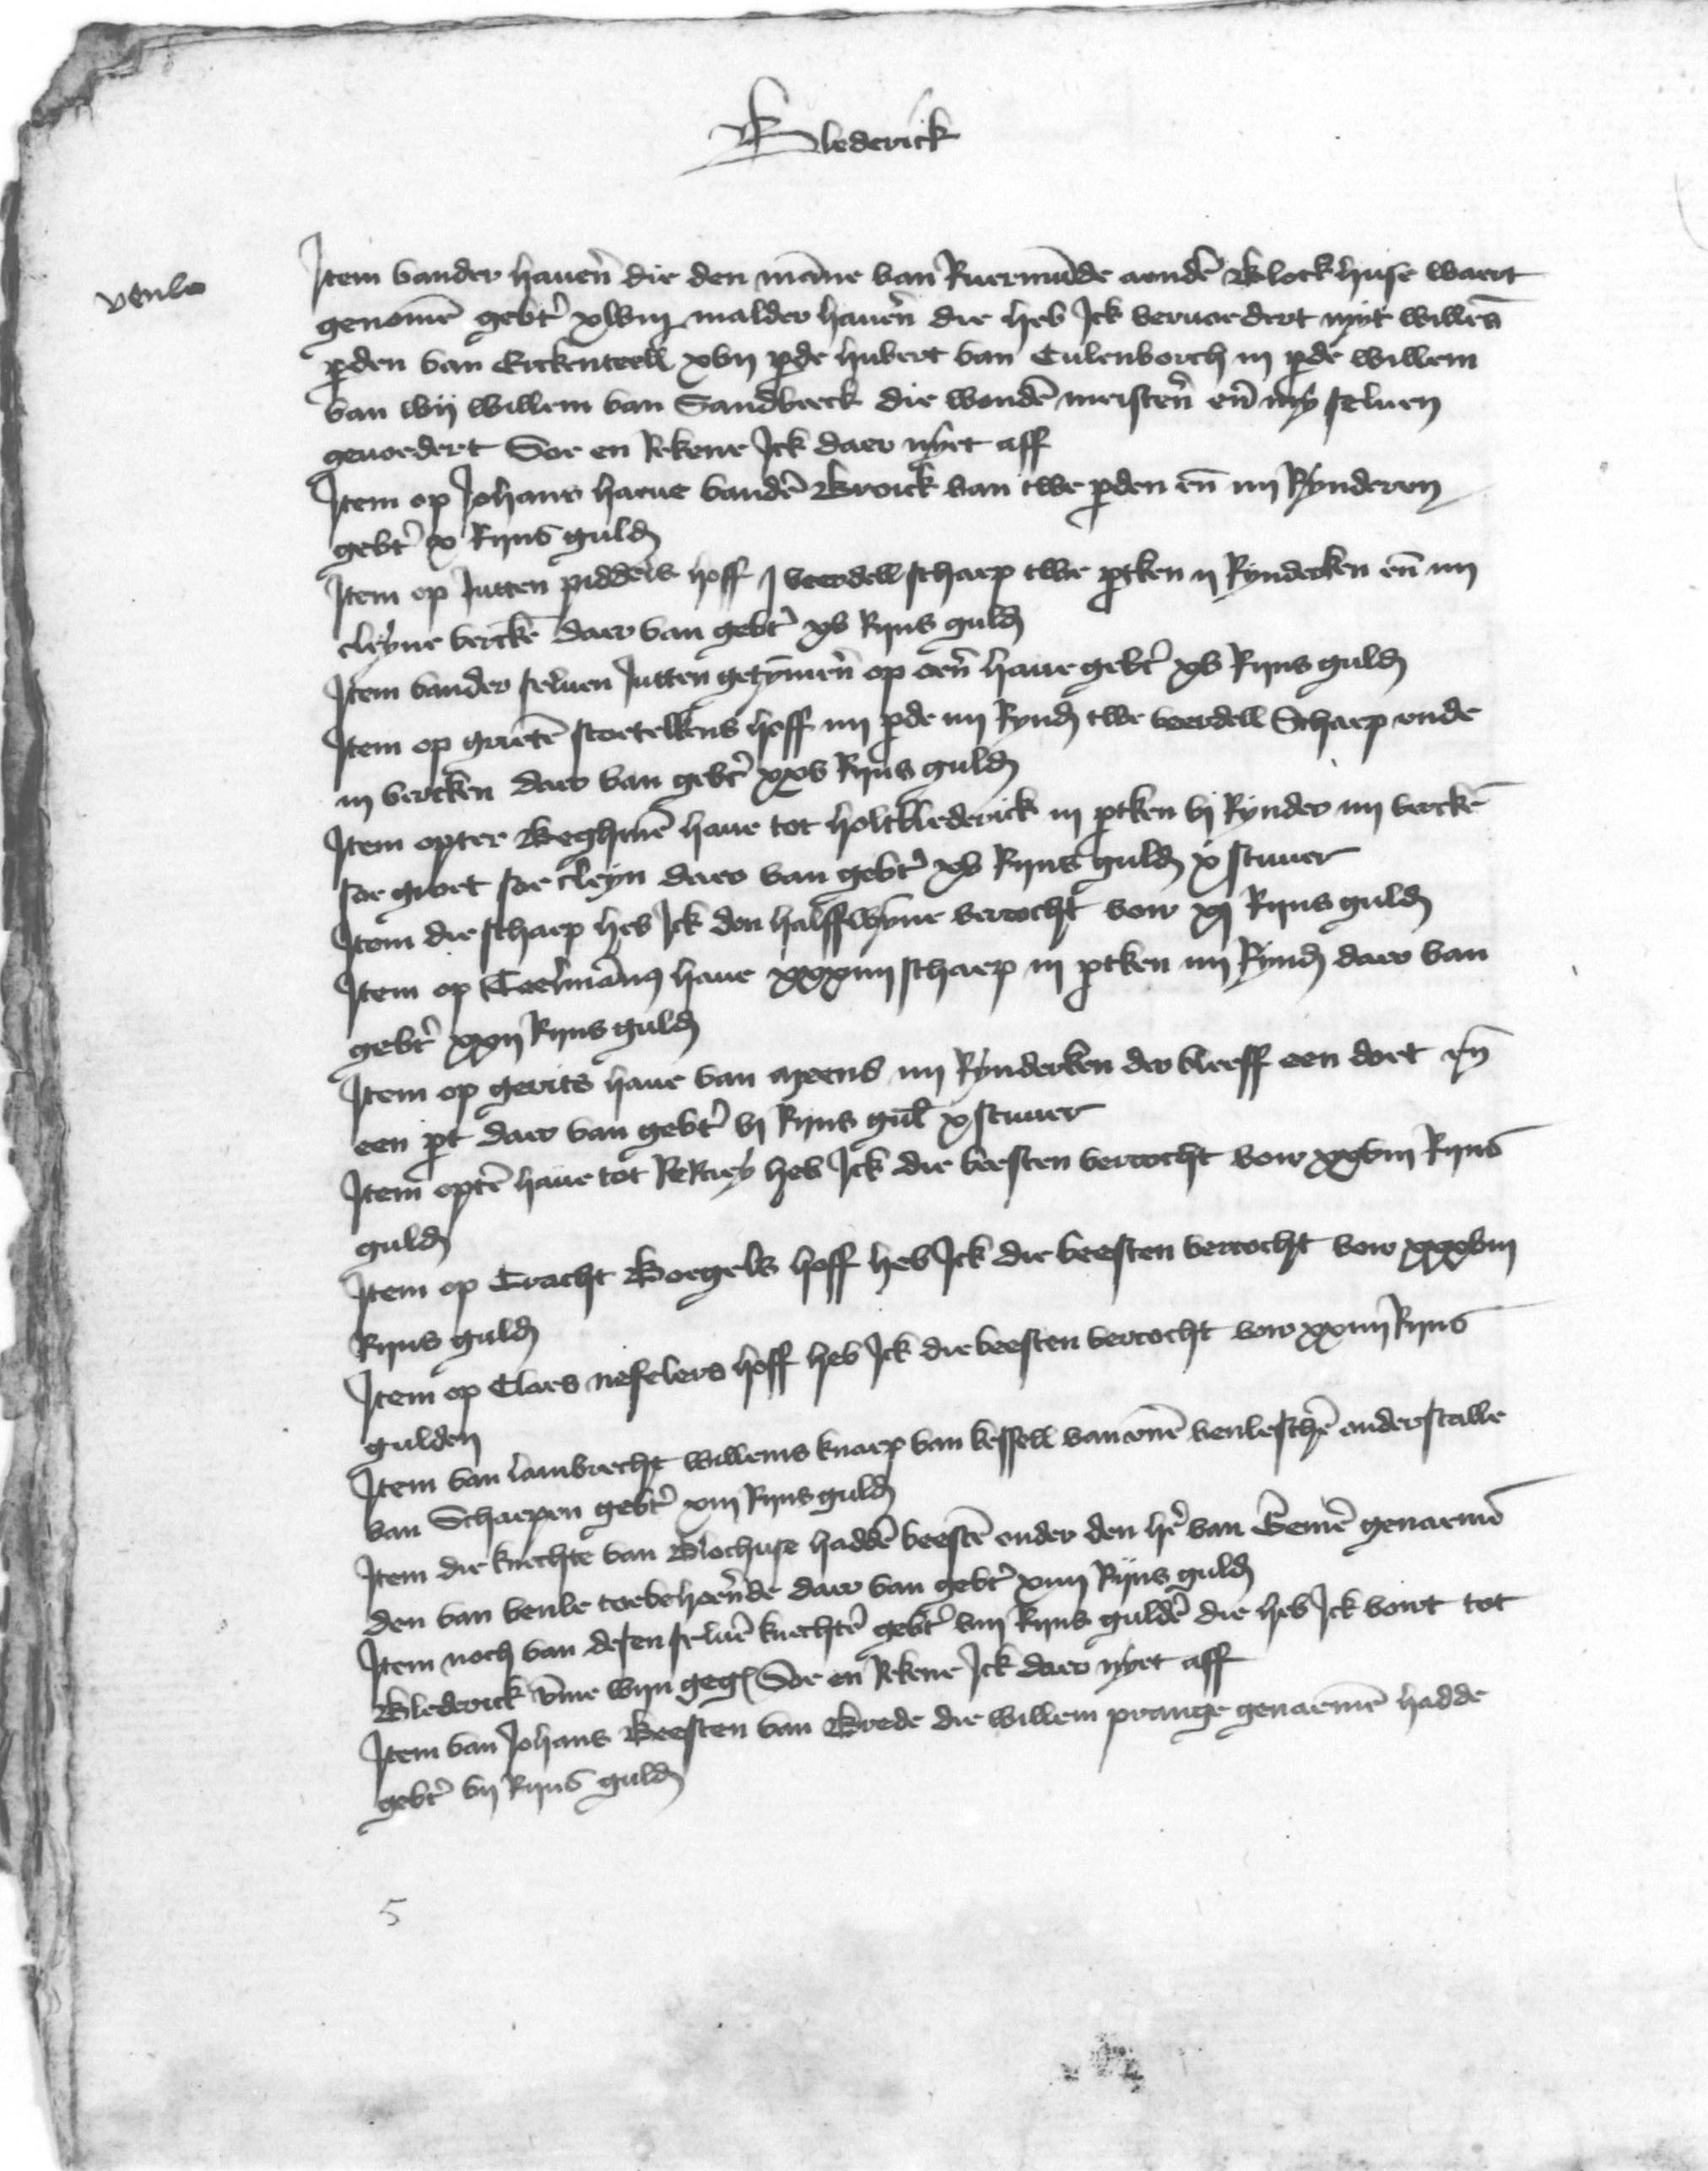 Blederick
venlo
Item vander haueñ die den mañe van Ruermūde aendē Blockhuse waert
genomē gebt' xlviij malder haueñ die heb Ick veruoedert myt willēs
perden van Erckenteell xvij perde hubert van Culenborch iij perde willem
van wij willem van Sandbeeck die wondē meisteñ eñ mÿ seluen
geuoedert Soe en Rekene Ick daer nyet aff
Item op Johans haeue vandē Broick van twe perden eñ iiij Rynderen
gebt' x Rijns guld
Item op Jutten piddels hoff j veerdell schaep twe pertken ij Rynderken eñ iiij
cleyne verckē daer van gebt' xv Rijns guld
Item vander seluen Jutten getymeñ op oeñ haue gebt' xv Rijns guld
Item op grietē stoetelkens hoff iiij perde iiij Rynd twe veerdell Schaep ende
iij vercken daer van gebt' xxv Rijns guld
Item opter Beghinē haue tot holtblederick iij pertken vj Rynder iiij verckē
soe groet soe cleyn daer van gebt' xv Rijns guld x stuuer
Item die schaep heb Ick den halffwyne vercocht voir xj Rijns guld
Item op Teelmans haue xxxiiij schaep iij pertken iiij Rynd daer van
gebt' xxij Rijns guld
Item op gerits haue van meens iiij Rynderken der bleeff een doet eñ
een pert daer van gebt' vj Rijns gul x stuuer
Item optē haue tot heb Ick die beesten vercocht voir xxviij Rijns
guld
Item op Cracht Boegels hoff heb Ick die beesten vercocht voir xxxviij
Rijns guld
Item op Claes neselers hoff heb Ick die beesten vercocht voir xxiiij Rijns
gulden
Item van lambrecht willems knaep van kessell van enē venleschē onderstalle
van Schaepen gebt' xiij Rijns guld
Item die knechte van Blochuse haddē beestē onder den h' van Gemē genaemē
den van venle toebehoeñde daer van gebt' xiiij Rijns guld
Item noch van desen seluē knechtē gebt' viij Rijns guldē die heb Ick voirt tot
Blederick vme wijn geg Soe en Rekene Ick daer nyet aff
Item van Johans Beesten van Brede die willem prange genaemē hadde
gebt' vij Rijns guld
5